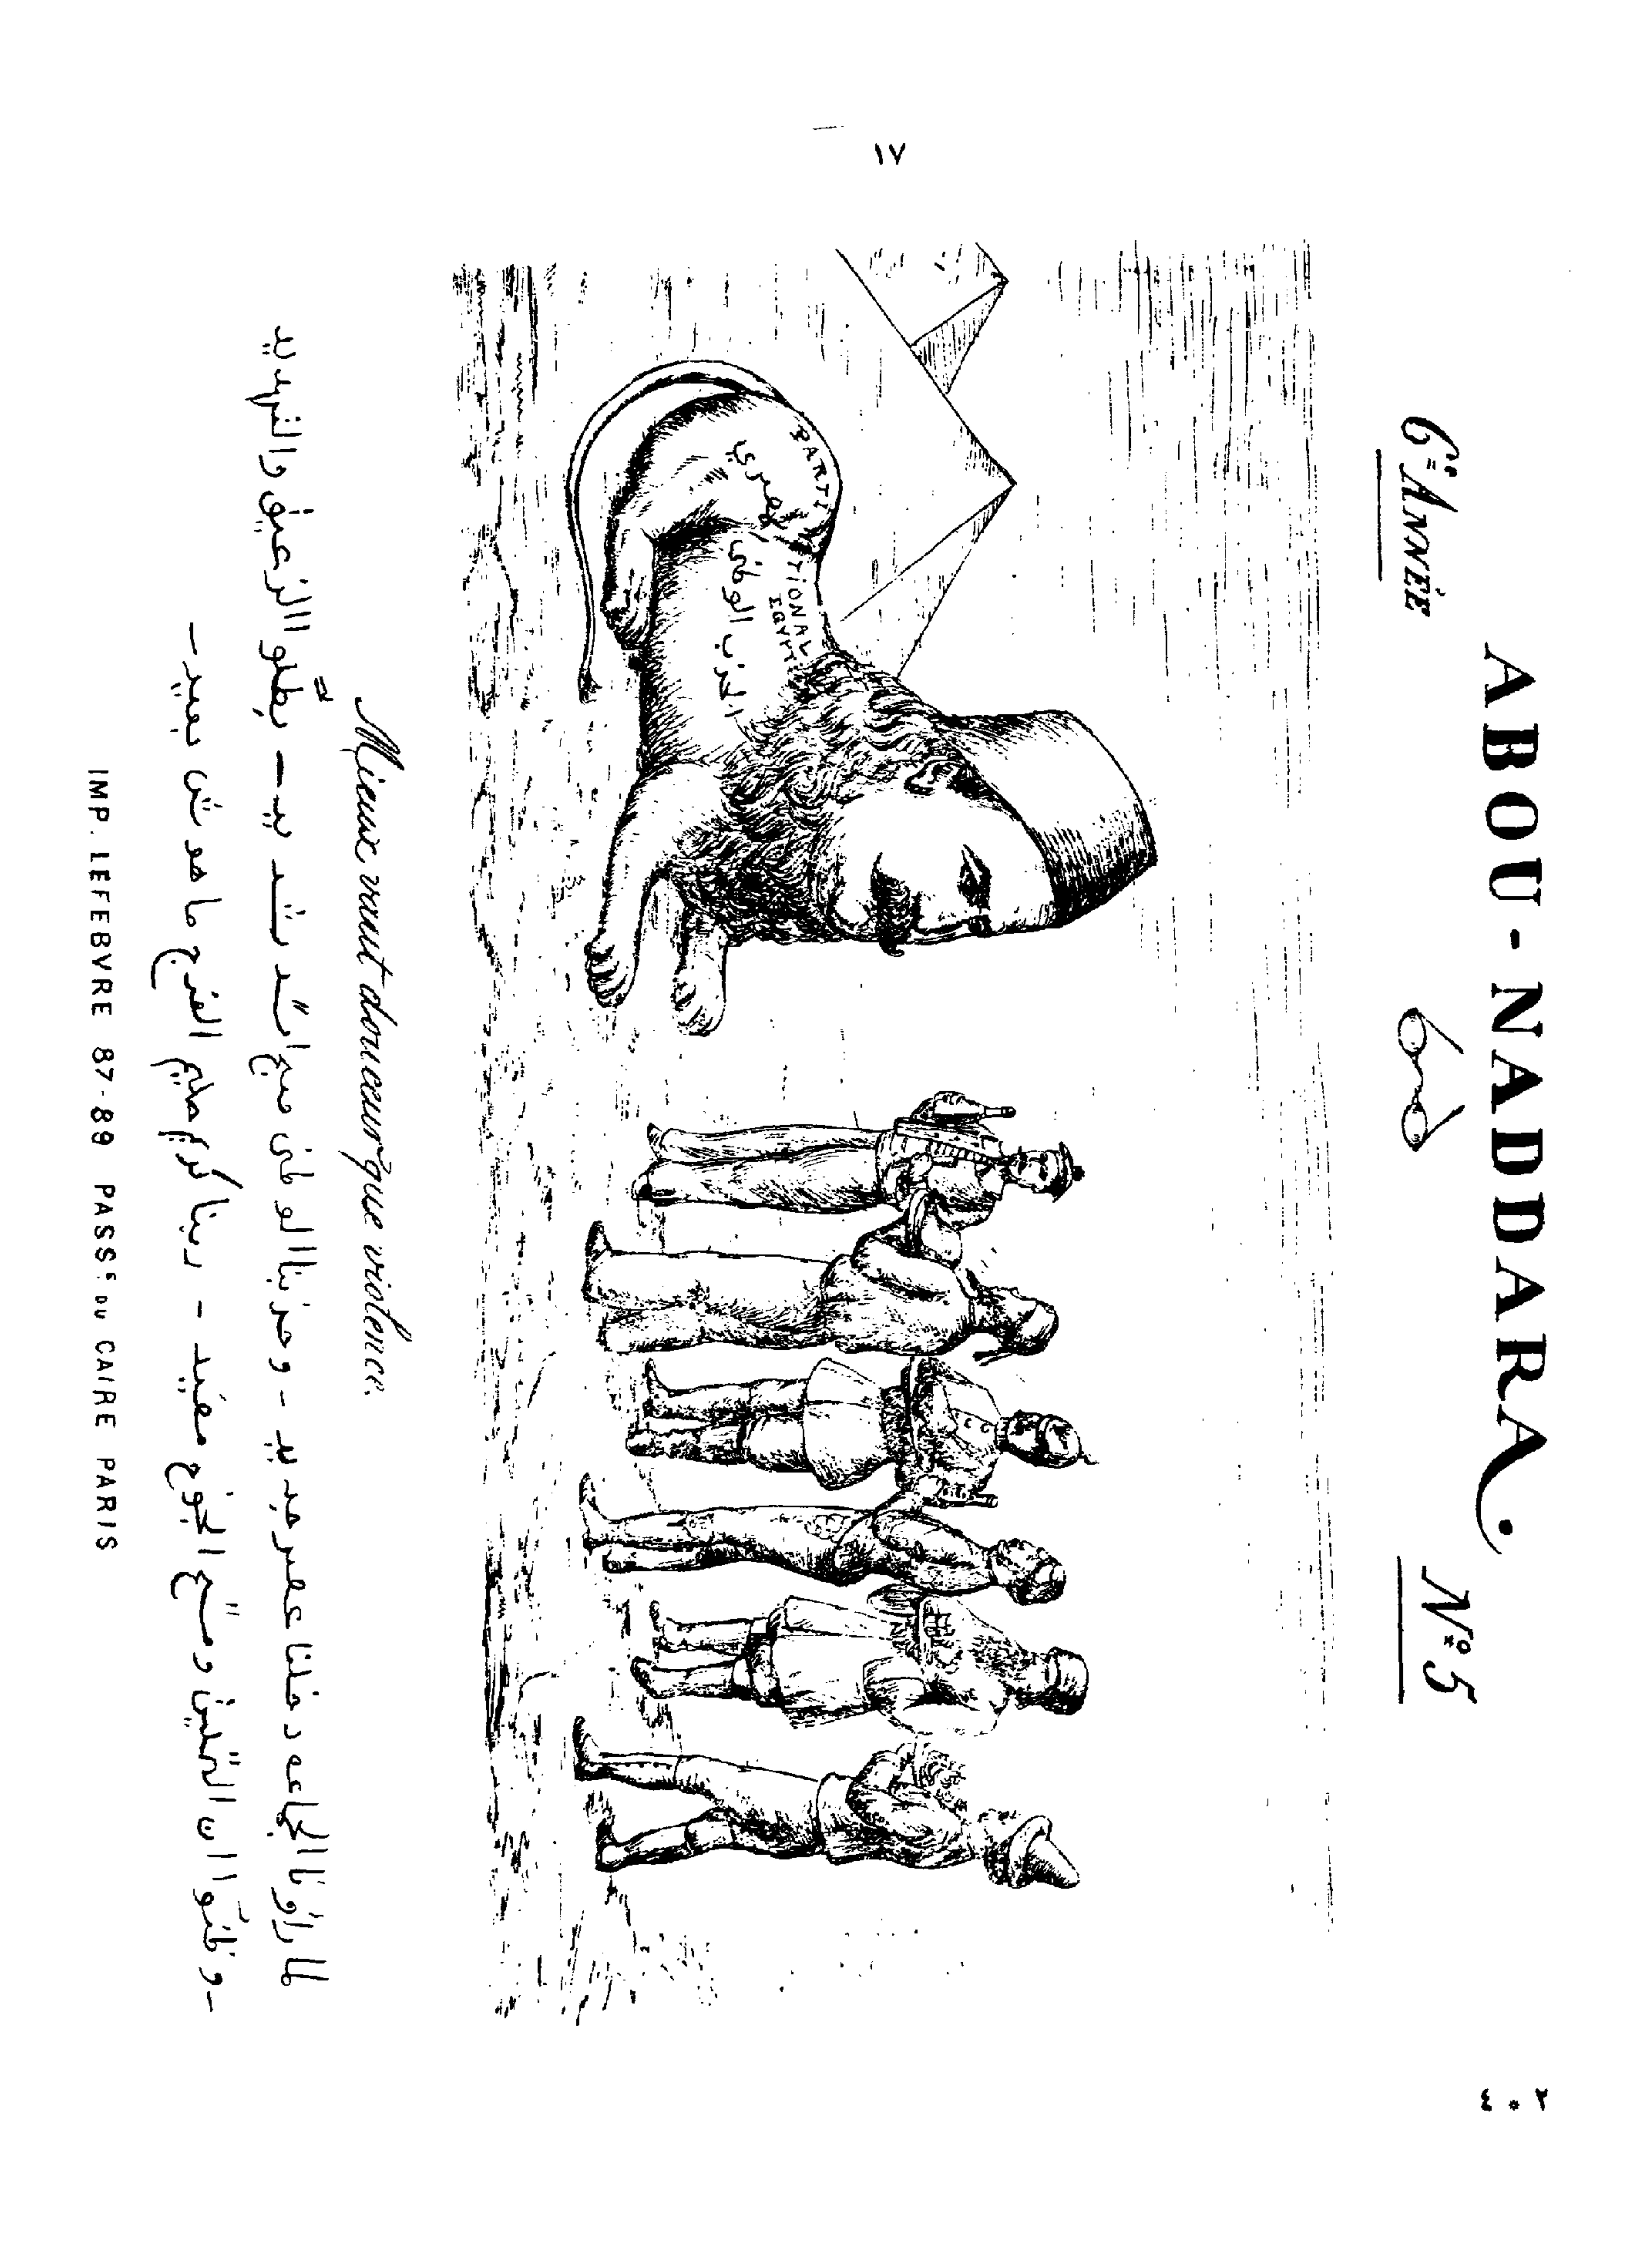 ١٧
ABOU-NADDARA.
6e ANNÉE
No 5
PARTI
TIONAL
EGYPT
الحزب الوطني
المصري
Mieux vaut douceur que violence.
لما راونا الجماعه دخلنا عصر جديد - وحزبنا الوطنى صبح اسد شديد - بطّلوا الزعيق والتهديد
- وظنّوا ان التمليق ومسح الجوخ مفيد - ربنا كريم حليم الفرج ما هوش بعيد -
IMP. LEFEBVRE 87-89 PASSE DU CAIRE PARIS
٤٠٢